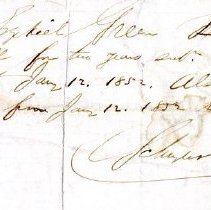 Ezekiel Green
for two years sub.
Jany 12. 1852. Als
from Jany 12. 1852
Schuyler